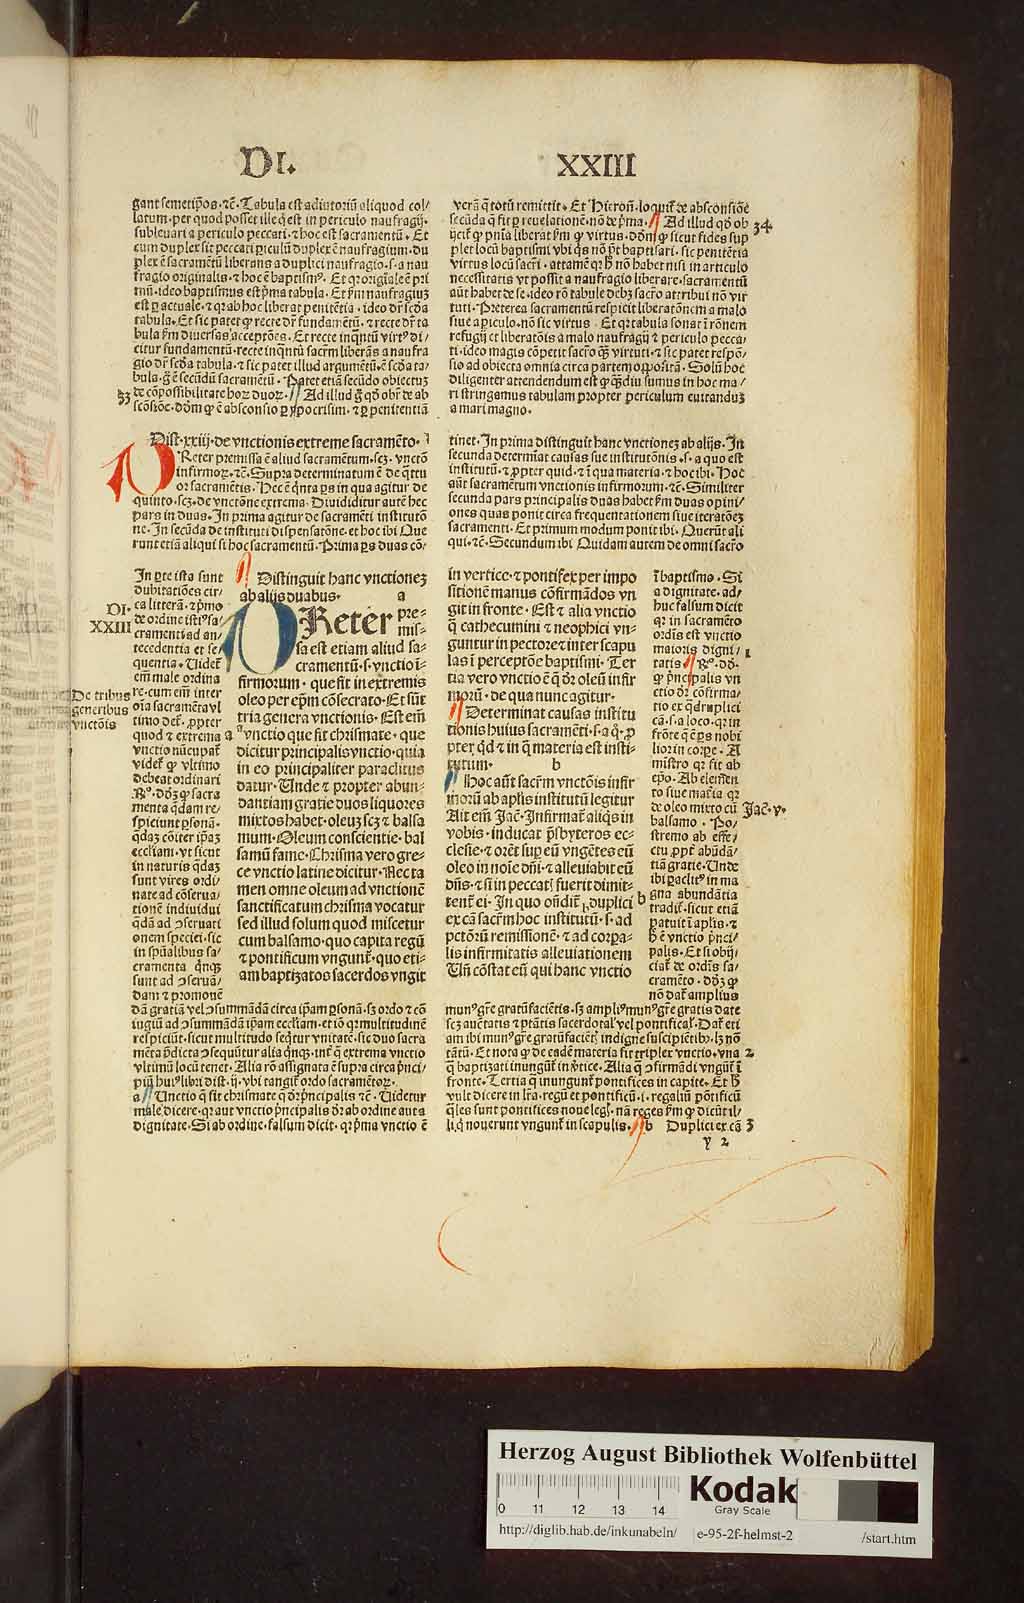 DI. XXIII
gant semetip̄os·⁊c̄·Tabula est adiutoriū aliquod col/
latum·per quod posset ille q̄ est in periculo naufragij·
subleuari a periculo peccati·⁊ hoc est sacramentū·Et
cum duplex sit peccati ꝑiculū duplex ē naufragium·du
plex ē sacramētū liberans a duplici naufragio·s·a nau
fragio originalis·⁊ hoc ē baptismꝰ·Et qꝛ origīale ē pri
mū·ideo baptismus est pͥma tabula·Et ẜm naufragiuꝫ
est ꝑ actuale·⁊ qꝛ ab hoc liberat penitētia·ideo dr̄ scḋa
tabula·Et sic patet ꝙ recte dr̄ fundamētū·⁊ recte dr̄ ta
bula ẜm diuersas acceptōes·Et recte inq̄ntū virtꝰ di/
citur fundamentū·recte inq̄ntū sacrm̄ liberās a naufra
gio dr̄ scḋa tabula·⁊ sic patet illud argumētū·ē scḋa ta/
bula·g̊ ē secūdū sacramētū·Patet etiā secūdo obiectuꝫ
33 de cōpossibilitate hoꝝ duoꝝ·Ad illud g̊ qḋ obr̄ de ab
scōsiōe·dōm ꝙ ē absconsio ꝑ ypocrisim·⁊ ꝑ penitentiā
verā q̄ totū remittit·Et Hieron̄·loquit̄ de absconsiōe
secūda q̄ fit ꝑ reuelationē·nō de pͥma·Ad illud qḋ ob 34
ijcit̄ ꝙ pn̄ia liberat ẜm ꝙ virtus·dōm ꝙ sicut fides sup
plet locū baptismi vbi q̇s nō pōt baptisari·sic penitētia
virtus locū sacr̄i·attamē qꝛ h̄ nō habet nisi in articulo
necessitatis vt possit a naufragio liberare·sacramentū
aūt habet de se·ideo rō tabule debꝫ sacr̄o attribui nō vir
tuti·Preterea sacramentū respicit liberatōnem a malo
siue a ꝑiculo·nō sic virtus·Et qꝛ tabula sonat ī rōnem
refugij et liberatōis a malo naufragij ⁊ periculo pecca/
ti·ideo magis cōpetit sacr̄o q̄ꝫ virtuti·⁊ sic patet respō/
sio ad obiecta omnia circa partem oppositā·Solū hoc
diligenter attendendum est ꝙ q̄ꝫdiu sumus in hoc ma/
ri stringamus tabulam propter periculum euitanduꝫ
a mari magno·
Dist·xxiij·de vnctionis extreme sacramēto·
PReter premissa ē aliud sacramētum·scꝫ·vnctō
infirmoꝝ·⁊c̄·Supra determinatum ē de q̄ttu
or sacramētis·Hec ē q̄nta ꝑs in qua agitur de
quinto·scꝫ·de vnctōne extrema·Diuiditur autē hec
pars in duas·In prima agitur de sacramēti institutō
ne·In secūda de instituti dispensatōne·et hoc ibi Que
runt etiā aliqui si hoc sacramentū·Prima ꝑs duas cō/
tinet·In prima distinguit hanc vnctioneꝫ ab alijs·In
secunda determīat causas sue institutōnis·s·a quo est
institutū·⁊ ꝓpter quid·⁊ ī qua materia·⁊ hoc ibi·Hoc
aūt sacramētum vnctionis infirmorum·⁊c̄·Similiter
secunda pars principalis duas habet ẜm duas opini/
ones quas ponit circa frequentationem siue iteratōeꝫ
sacramenti·Et primum modum ponit ibi·Querūt ali
qui·⁊c̄·Secundum ibi Quidam autem de omni sacr̄o
DI·
XXIII
De tribus
generibus
vnctōis
In ꝑte ista sunt
dubitatiōes cir/
ca litterā·⁊ pͥmo
de ordine istiꝰ sa/
cramenti ad an/
tecedentia et se/
quentia·Videt̄
em̄ male ordina
re·cum em̄ inter
oīa sacramēta vl
timo det̄·ꝓpter
quod ⁊ extrema
vnctio nūcupat̄
videt̄ ꝙ vltimo
debeat ordinari
R̊·dōꝫ ꝙ sacra
menta q̄dam re/
spiciunt ꝑsonā·
q̄daꝫ cōiter ip̄aꝫ
eccl̄iam·vt sicut
in naturis q̄daꝫ
sunt vires ordi/
nate ad cōserua/
tionē indiuidui
q̄dā ad ꝯseruati
onem speciei·sic
in spūalibus sa/
cramenta q̄nqꝫ
sunt ad ꝯseruā/
dam ⁊ promouē
Distinguit hanc vnctioneꝫ
ab alijs duabus· a
PReter pre=
mis=
sa est etiam aliud sa=
cramentū·s·vnctio ī=
firmorum·que fit in extremis
oleo per ep̄m cōsecrato·Et sūt
tria genera vnctionis·Est em̄
a vnctio que fit chrismate·que
dicitur principalis vnctio·quia
in eo principaliter paraclitus
datur·Unde ⁊ propter abun=
dantiam gratie duos liquores
mixtos habet·oleuꝫ scꝫ ⁊ balsa
mum·Oleum conscientie·bal
samū fame·Chrisma vero gre=
ce vnctio latine dicitur·Nec ta
men omne oleum ad vnctionē
sanctificatum chrisma vocatur
sed illud solum quod miscetur
cum balsamo·quo capita regū
⁊ pontificum vngunt̄·quo eti=
am baptizatos sacerdos vngit
in vertice·⁊ pontifex per impo
sitionē manus cōfirmādos vn
git in fronte·Est ⁊ alia vnctio
q̄ cathecumini ⁊ neophici vn=
guntur in pectore ⁊ inter scapu
las ī perceptōe baptismi·Ter
tia vero vnctio ē q̄ dr̄ oleū infir
morū·de qua nunc agitur·
Determinat causas institu
tionis huius sacramēti·s·a q̊·ꝓ
pter q̇d ⁊ in q̄ materia est insti=
tutum· b
Hoc aūt sacrm̄ vnctōis infir
morū ab apl̄is institutū legitur
Ait em̄ Jac̄·Infirmat̄ aliq̇s in
vobis·inducat p̄sbyteros ec=
clesie·⁊ orēt suꝑ eū vngētes eū
oleo in noīe dn̄i·⁊ alleuiabit eū
dn̄s·⁊ si in peccatꝭ fuerit dimit=
tent̄ ei·In quo on̄dit̄ duplici b
ex cā sacrm̄ hoc institutū·s·ad
pctōrū remissionē·⁊ ad corꝑa=
lis infirmitatis alleuiationem
Un̄ cōstat eū qui hanc vnctio
ī baptismo·Si
a dignitate·ad/
huc falsum dicit
qꝛ in sacramēto
ordīs est vnctio
maioris digni/ 1
tatis·R̊·dō·
ꝙ pͥncipalis vn
ctio dr̄ cōfirma/
tio ex q̄druplici
cā·s·a loco·qꝛ in
frōte q̄ ē ꝑs nobi
lior in corꝑe·A
mistro qꝛ fit ab
ep̄o·Ab elemen
to siue mat̄ia qꝛ
de oleo mixto cū
balsamo·Po/
stremo ab effe/
ctu ꝓpt̄ abūdā/
tiā gratie·Unde
ibi ꝑaclitꝰ in ma
gna abundātia
tradit̄·sicut etiā
patuit ī apl̄is·⁊
h̄ ē vnctio pͥnci/
palis·Et si obij/
ciat̄ de ordīs sa/
cramēto·dōꝫ ꝙ
nō dat̄ amplius
Jac̄·v·
dā gratiā vel ꝯsummādā circa ip̄am ꝑsonā·sꝫ ordo ⁊ cō
iugiū ad ꝯsummādā ip̄am eccl̄iam·et iō qꝛ multitudinē
respiciūt·sicut multitudo seq̇tur vnitatē·sic duo sacra
mēta p̄dicta ꝯsequūtur alia q̄nqꝫ·int̄ q̄ extrema vnctio
vltimū locū tenet·Alia rō assignata ē supra circa pͥnci/
piū huiꝰ libri dist·ij·vbi tangit̄ ordo sacramētoꝝ·
a Vnctio q̄ fit chrismate q̄ dr̄ pͥncipalis ⁊c̄·Videtur
male dicere·qꝛ aut vnctio pͥncipalis dr̄ ab ordine aut a
dignitate·Si ab ordine·falsum dicit·qꝛ pͥma vnctio ē
munꝰ gr̄e gratū faciētis·sꝫ ampliꝰ munꝰ gr̄e gratis date
scꝫ auc̄tatis ⁊ ptātis sacerdotal̄ vel pontifical̄·Dat̄ eti
am ibi munꝰ gr̄e gratū faciētꝭ indigne suscipiētibꝫ·lꝫ nō
tātū·Et nota ꝙ de eadē materia fit triplex vnctio·vna 2
q̄ baptizati inungūt̄ in v̄tice·Alia q̄ ꝯfirmādi vngūt̄ ī
fronte·Tertia q̄ inungunt̄ pontifices in capite·Et h̄
vult dicere in lr̄a·regū et pontificū·i·regaliū pōtificū
q̄les sunt pontifices noue legꝭ·nā reges ẜm ꝙ dicūt il/
li q̇ nouerunt vngunt̄ in scapulis·b Duplici ex cā 3
y 2
Herzog August Bibliothek Wolfenbüttel
0 11 12 13 14
Kodak
Gray Scale
http://diglib.hab.de/inkunabeln/ e-95-2f-helmst-2 /start.htm